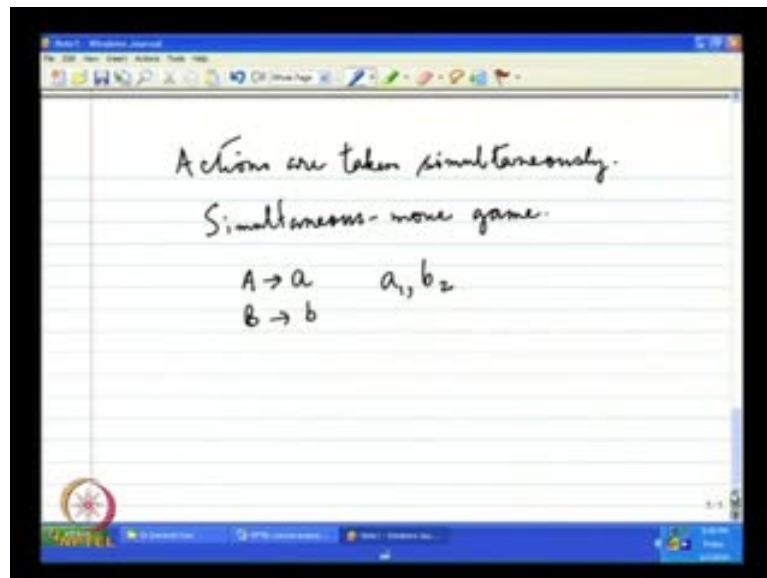 Note1 - Windows Journal
File Edit View Insert Actions Tools Help
Actions are taken simultaneously.
Simultaneous-move game.
A → a a₁, b₂
B → b
NPTEL